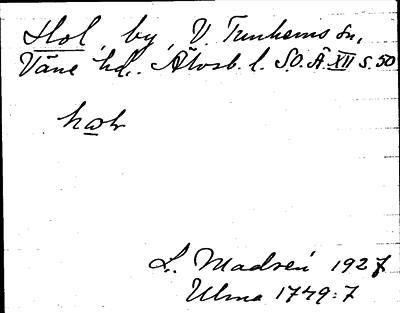 Hol, by, V. Tunhems sn,
Väne hd. Älvsb. l. S.O.Ä XII s. 50
L. Madsén 1927
Ulma 1749:7